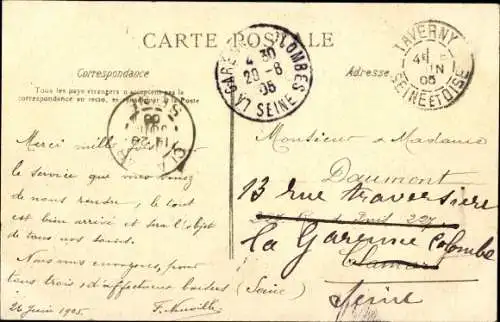 CARTE POSTALE
Correspondance
Tous les pays étrangers n'acceptent pas la
correspondance au recto, se renseigner à la Poste
Adresse
LA GARENNE COLOMBES
2 30
20 - 6
05
LA SEINE
TAVERNY
05
SEINE ET OISE
Merci mille fois pour
le service que vous venez
de nous rendre, le tout
est bien arrivé et sera l'objet
de tous nos soins.
Nous vous envoyons, pour
tous trois, d'affectueux baisers
26 juin 1905. F. Neuville
Monsieur & Madame
Daumont
13 rue traversière
227
la Garenne Colombe
Clamart
(Seine)
Seine